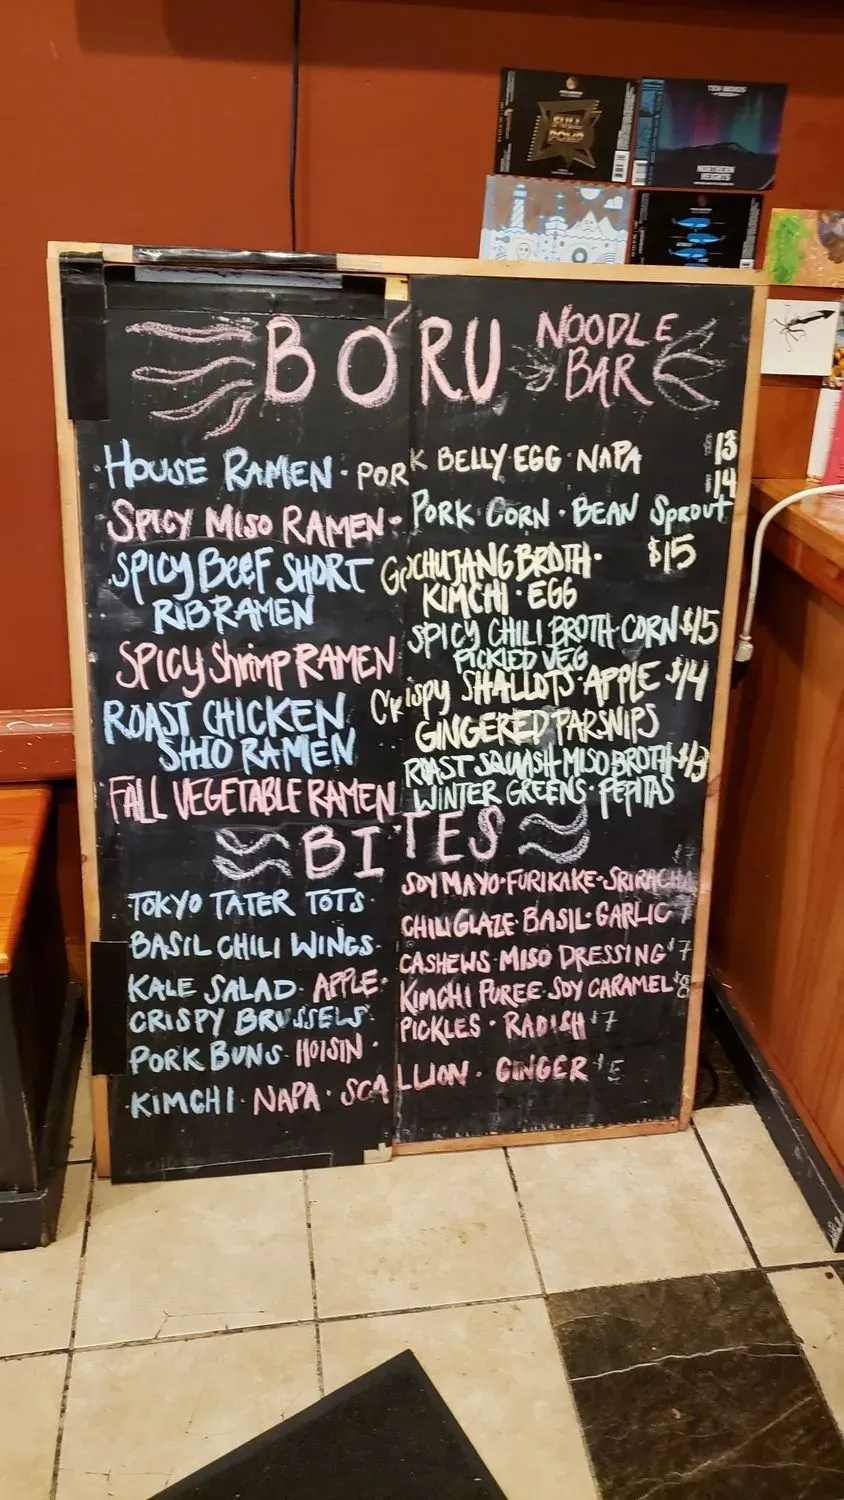 FULL POMP
TEN BENDS
NORTHERN HEIGHTS
BORU NOODLE BAR
HOUSE RAMEN · PORK BELLY · EGG · NAPA $13
SPICY MISO RAMEN · PORK · CORN · BEAN Sprout $14
SPICY BEEF SHORT RIB RAMEN GOCHUJANG BROTH · KIMCHI · EGG $15
SPICY Shrimp RAMEN SPICY CHILI BROTH · CORN PICKLED VEG $15
ROAST CHICKEN SHIO RAMEN Crispy SHALLOTS · APPLE GINGERED PARSNIPS $14
FALL VEGETABLE RAMEN ROAST SQUASH · MISO BROTH · WINTER GREENS · PEPITAS $13
BITES
TOKYO TATER TOTS · SOY MAYO · FURIKAKE · SRIRACHA
BASIL CHILI WINGS · CHILI GLAZE · BASIL · GARLIC 7
KALE SALAD · APPLE · CASHEWS · MISO DRESSING $7
CRISPY BRUSSELS · KIMCHI PUREE · SOY CARAMEL $8
PORK BUNS · HOISIN · PICKLES · RADISH $7
KIMCHI · NAPA · SCALLION · GINGER $5